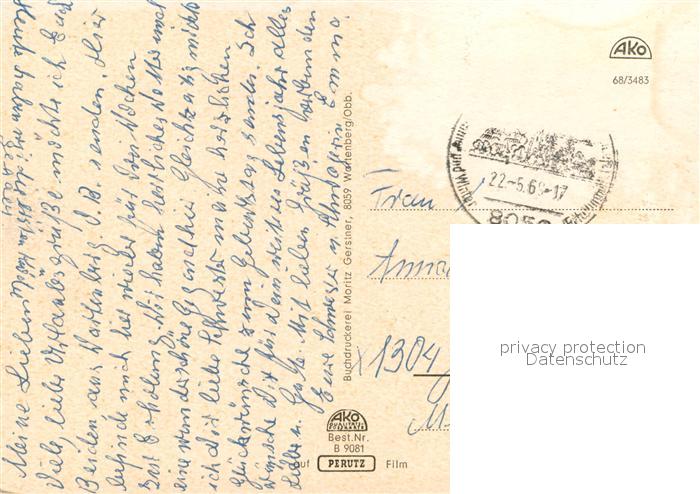 Meine Lieben!
Viele, liebe Urlaubsgrüße möchte ich Euch
Beiden aus Wartenberg O.B. senden. Hier
befinde mich hier wieder für drei Wochen
zur Erholung. Wir haben herrliches Wetter und
eine wunderschöne Gegend hier. Gleichzeitig möchte
ich Dir liebe Schwester meine herzlichen
Glückwünsche zum Geburtstag senden. Ich
wünsche Dir für Dein weiteres Lebensjahr alles
Liebe u. Gute. Mit lieben Grüßen verbunden
Eure Schwester u. Schwägerin Emma.
Buchdruckerei Moritz Gerstner, 8059 Wartenberg/Obb.
AKO
68/3483
22.-5.69-17
8059
Frau
Anna
1304
AKO
Best.Nr.
B 9081
auf PERUTZ Film
privacy protection
Datenschutz